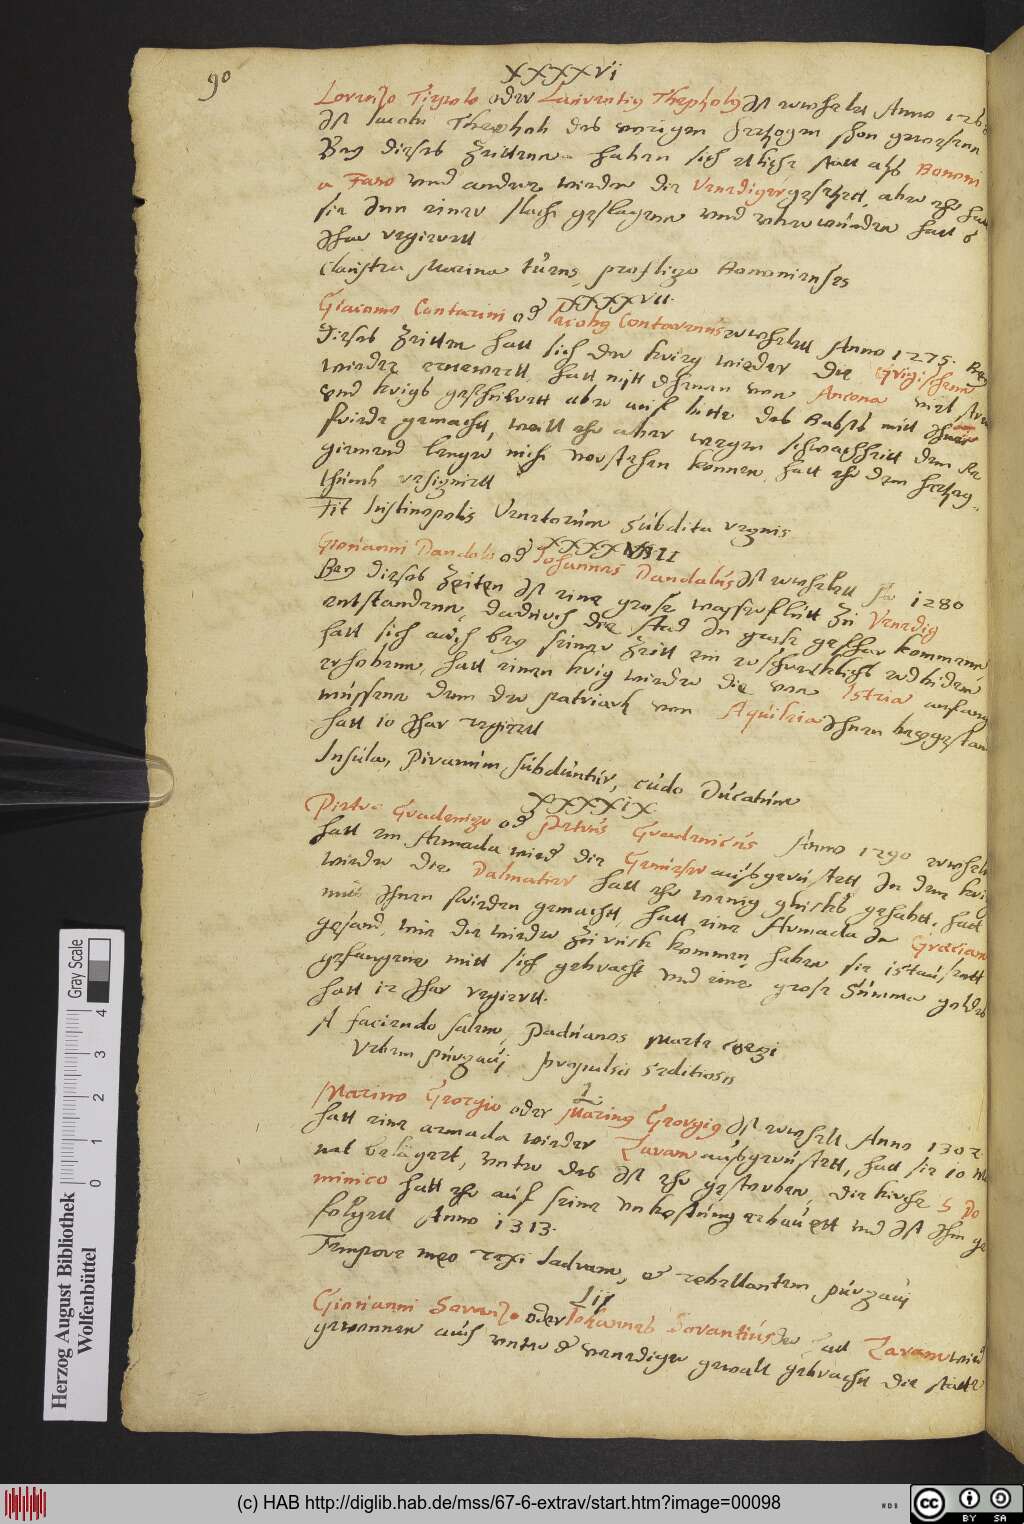 90
XXXXVI
Lorenzo Tiepolo oder Laurentius Thepholus Ist erwehlet Anno 126
Ist Iacobi Thepholi des vorigen hertzogen sohn gewesenn
Bey dieses Zeittenn haben sich etliche statt alss Bononi
a Fano vnd andere wieder die Venediger gesetzett, aber ehr hatt
sie Inn einer schlacht geslagenn vnd vberwunden hatt 6
Jhar regierett
Claustra Marina turris, profligo Bononienses
XXXXVII.
Giacomo Contarini od Iacobus Contarenus erwehlett Anno 1275. Bey
dieses Zeitten hatt sich der krieg wieder die Grigischenn
wieder ernewertt, hatt mitt denen von Ancona viel streit
vnd kriegs geschürett aber auf bitte des Babsts mitt Ihnen
friede gemacht, weill ehr aber wegen schwachheitt dem Re
giment lenger nicht vorstehen konnen, hatt ehr dem hertzog
thumb resignirtt
Fit Iustinopolis Venetorum subdita regnis
XXXXVIII
Giouanni Dandolo od Iohannes Dandalus Ist erwehlett Ao 1280
Bey dieses Zeiten Ist eine grose wasserflutt zu Venedig
entstandenn, dadurch die stad In grose gefhar kommenn,
hatt sich auch bey seiner Zeitt ein erschrecklichs erdbidem
erhobenn, hatt einen krieg wieder die von Istria anfang
müssenn denn der patriarch von Aquileia Ihnen beygestan
hatt 10 Jhar regirtt
Insulae, Piranum, subduntur, cudo Ducatum
XXXXIX
Pietro Gradenigo od Petrus Gradenicus Anno 1290 erwehlt
hatt ein Armada wied die Genueser aussgerüstett In dem krieg
wieder die Dalmatier hatt ehr wenig glucks gehabtt, hatt
mitt Ihnen frieden gemacht, hatt eine Armada In Graecian
gesand, wie die wieder zurück kommen haben sie 1500
gefangene mitt sich gebracht vnd eine grose Summa geldes
hatt 12 Jhar regiert.
A faciendo salem, Paduanos marte coegi
Vrbem purgaui propulsis seditiosis
L
Marino Georgio oder Marinus Georgius Ist erwehlt Anno 1302
hatt eine armada wieder Zaram aussgerüstett, hatt sie 10 Mo
nat belägert, vnter des Ist ehr gestorben, die kirche S Do
minico hatt ehr auf seine vnkostung erbauett vnd Ist Ihm ge
folgett Anno 1313.
Tempore meo rexi Iadram, et rebellantem purgaui
LI
Giouanni Soranzo oder Iohannes Sorantius der hatt Zaram wied
gewonnen auch vnter d venediger gewalt gebracht die statt
Herzog August Bibliothek
Wolfenbüttel
Gray Scale
0 1 2 3 4
(c) HAB http://diglib.hab.de/mss/67-6-extrav/start.htm?image=00098
WDB
cc BY SA